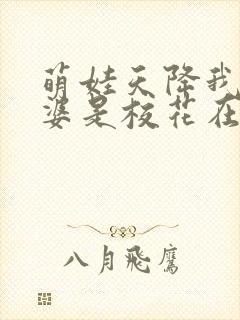 萌娃天降我
婆是校花在
八月飛鷹